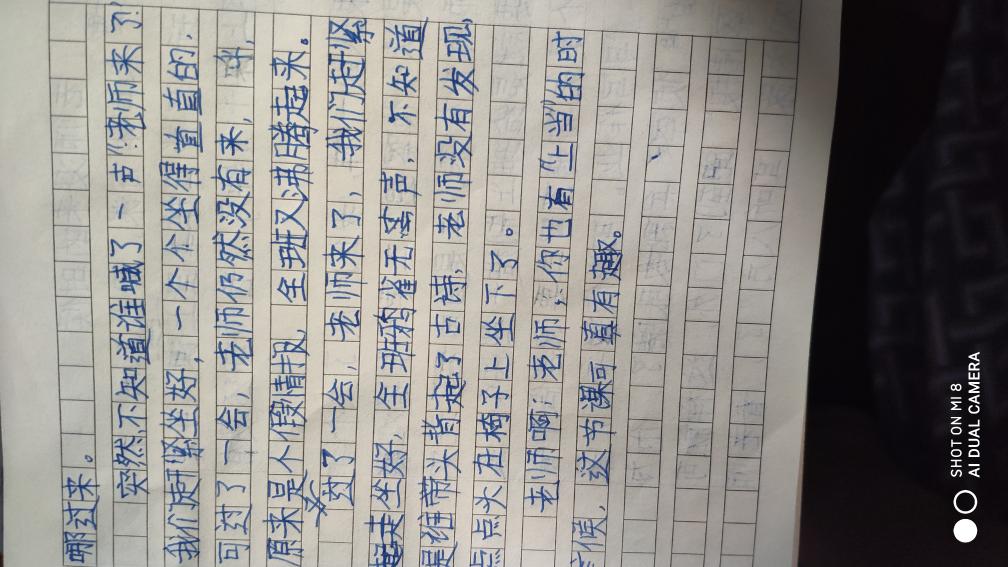 哪过来。
突然,不知道谁喊了一声:“老师来了!
我们赶紧坐好,一个个坐得直直的,
可过了一会,老师仍然没有来,
原来是个假情报,全班又沸腾起来。
又过了一会,老师来了,我们赶紧
坐好,全班鸦雀无声,不知道
是谁带头背起了古诗,老师没有发现,
点点头在椅子上坐下了。
老师啊!老师,你也有“上当”的时
候,这节课可真有趣。
SHOT ON MI 8
AI DUAL CAMERA